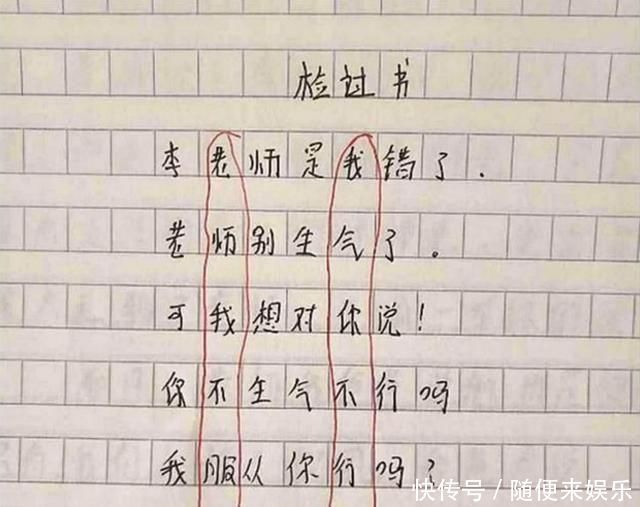 检过书
李老师是我错了.
老师别生气了。
可我想对你说!
你不生气不行吗
我服从你行吗?
快传号/随便来娱乐